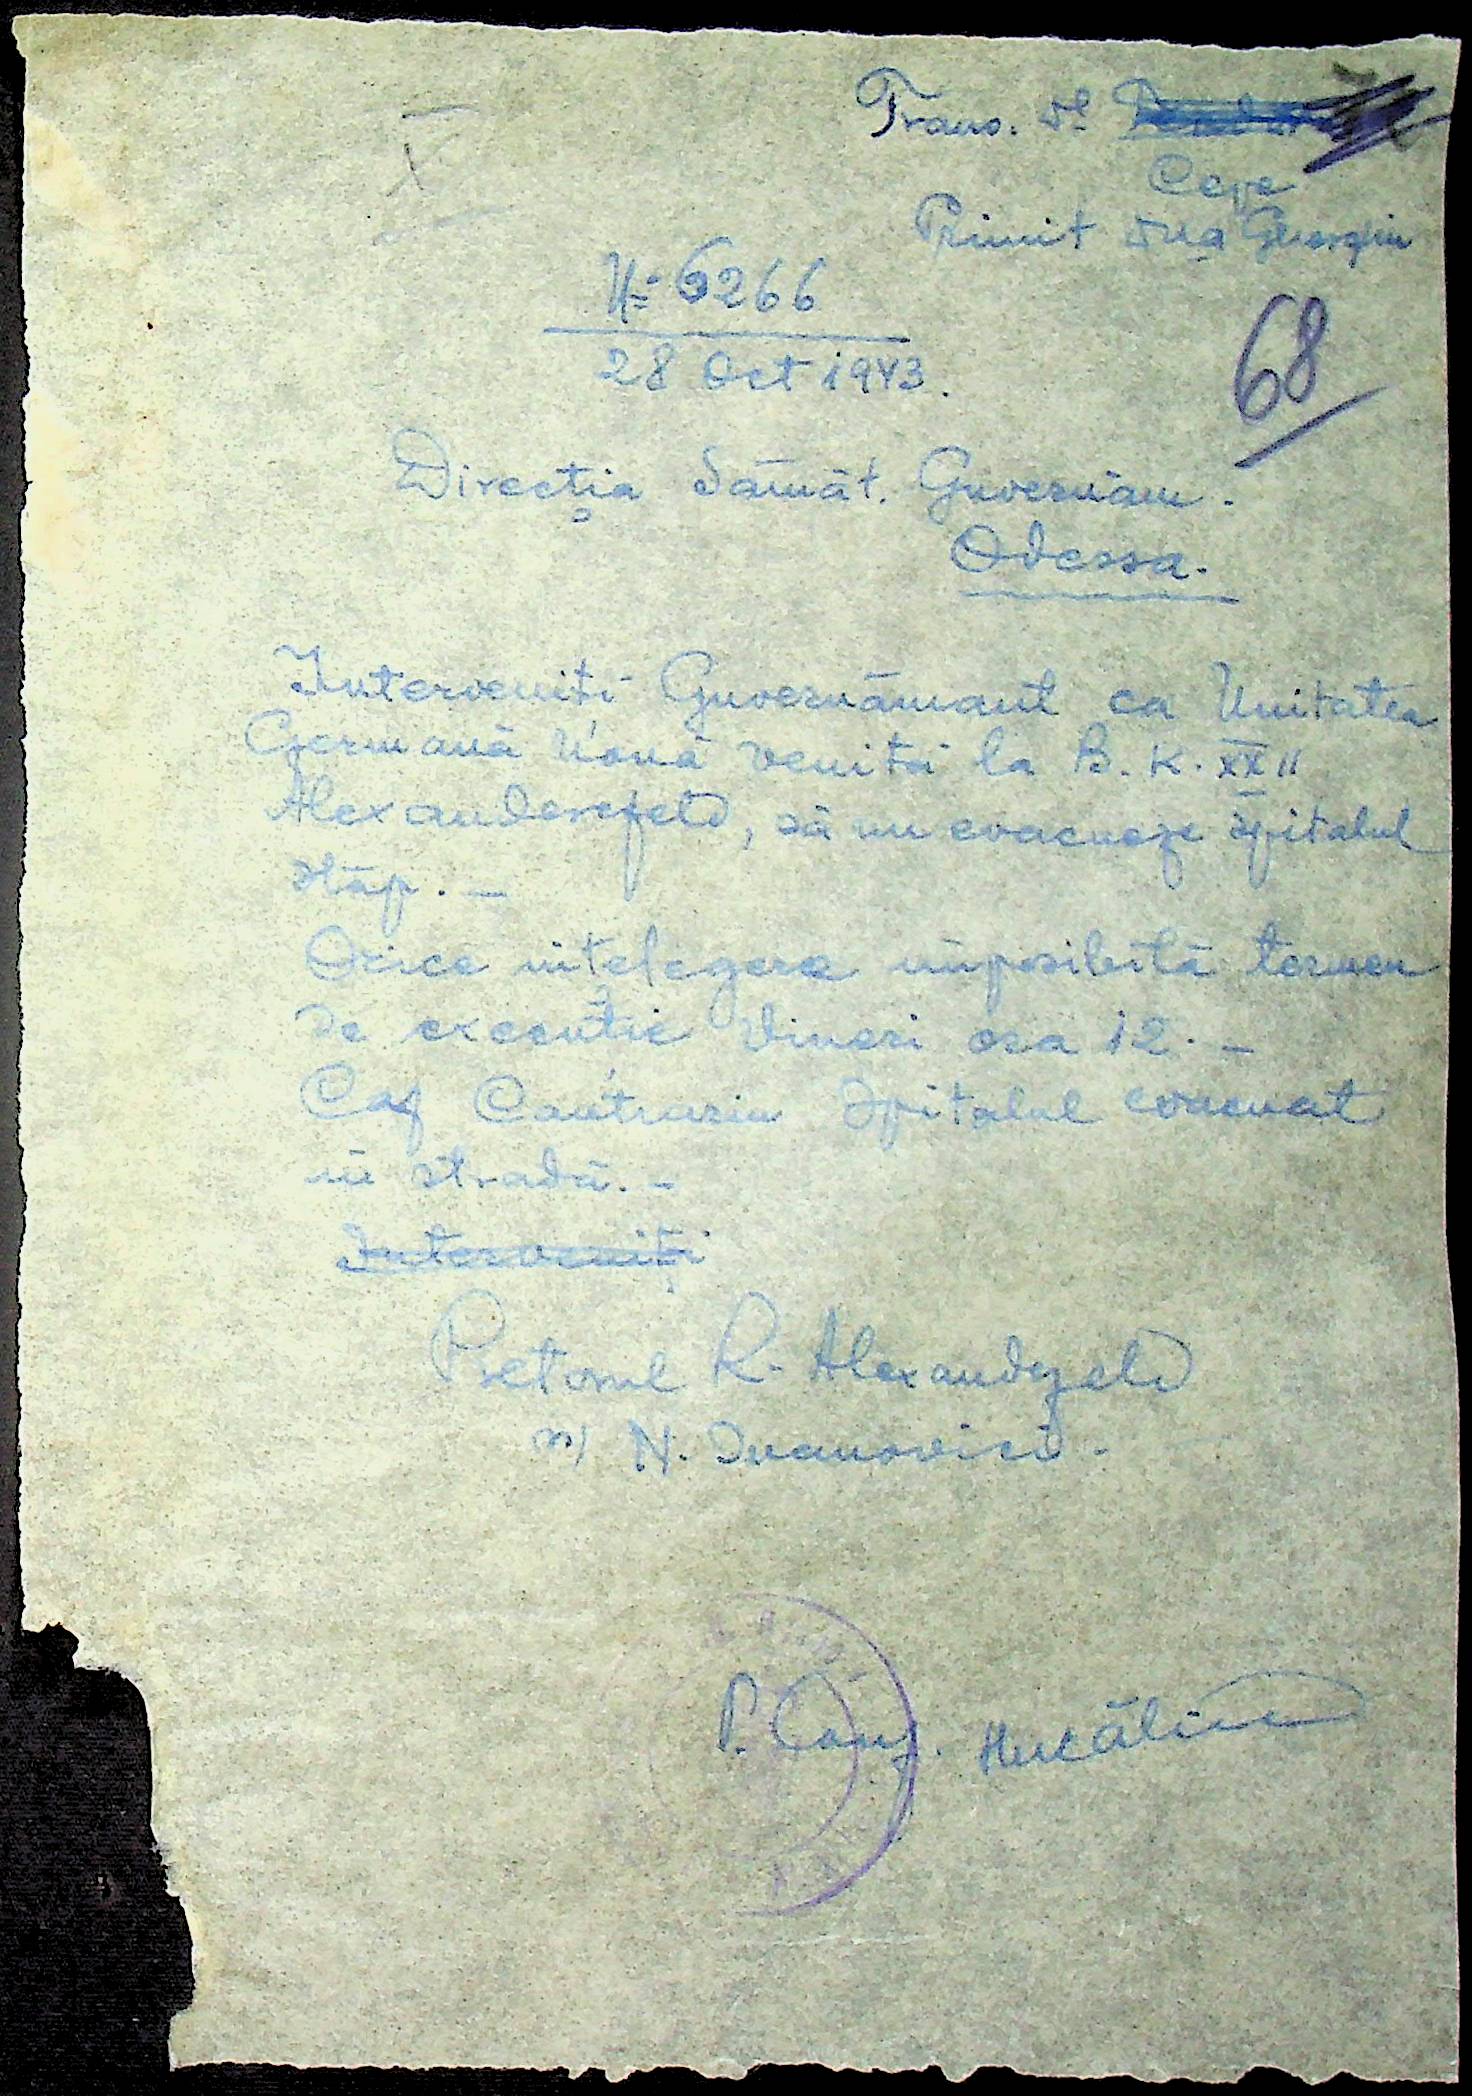 Trans. dl
Cepe
Primit dna Gheorghiu
№ 6266
28 Oct 1943.
68
Direcția Sănăt. Guvernăm.
Odessa.
Interveniți Guvernămant ca Unitatea
Germană Nouă venită la B. K. XXII
Alexanderefeld, să nu evacueze spitalul
stăp. —
Orice înțelegere imposibilă termen
de execuție Vineri ora 12. —
Caz Contrariu Spitalul evacuat
în stradă. —
Interveniți
Pretorul R. Alexandrfeld
ss) N. Ivanovici.
P. Conf.